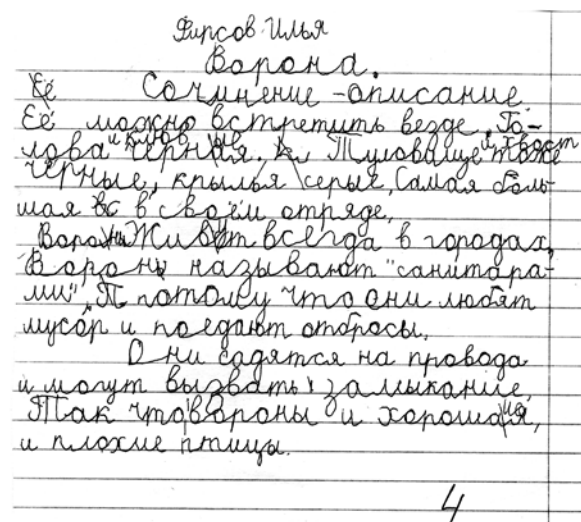 Фирсов Илья
Ворона.
Её Сочинение - описание.
Её можно встретить везде. Го-
лова и клюв чёрные. Туловище и хвост тоже
чёрные, крылья серые. Самая боль-
шая в своём отряде.
Вороны Живут всегда в городах.
Вороны называют "санитара-
ми". П потому что они любят
мусор и поедают отбросы.
Они садятся на провода
и могут вызвать замыкание.
Так что вороны и хорошие,
и плохие птицы.
4